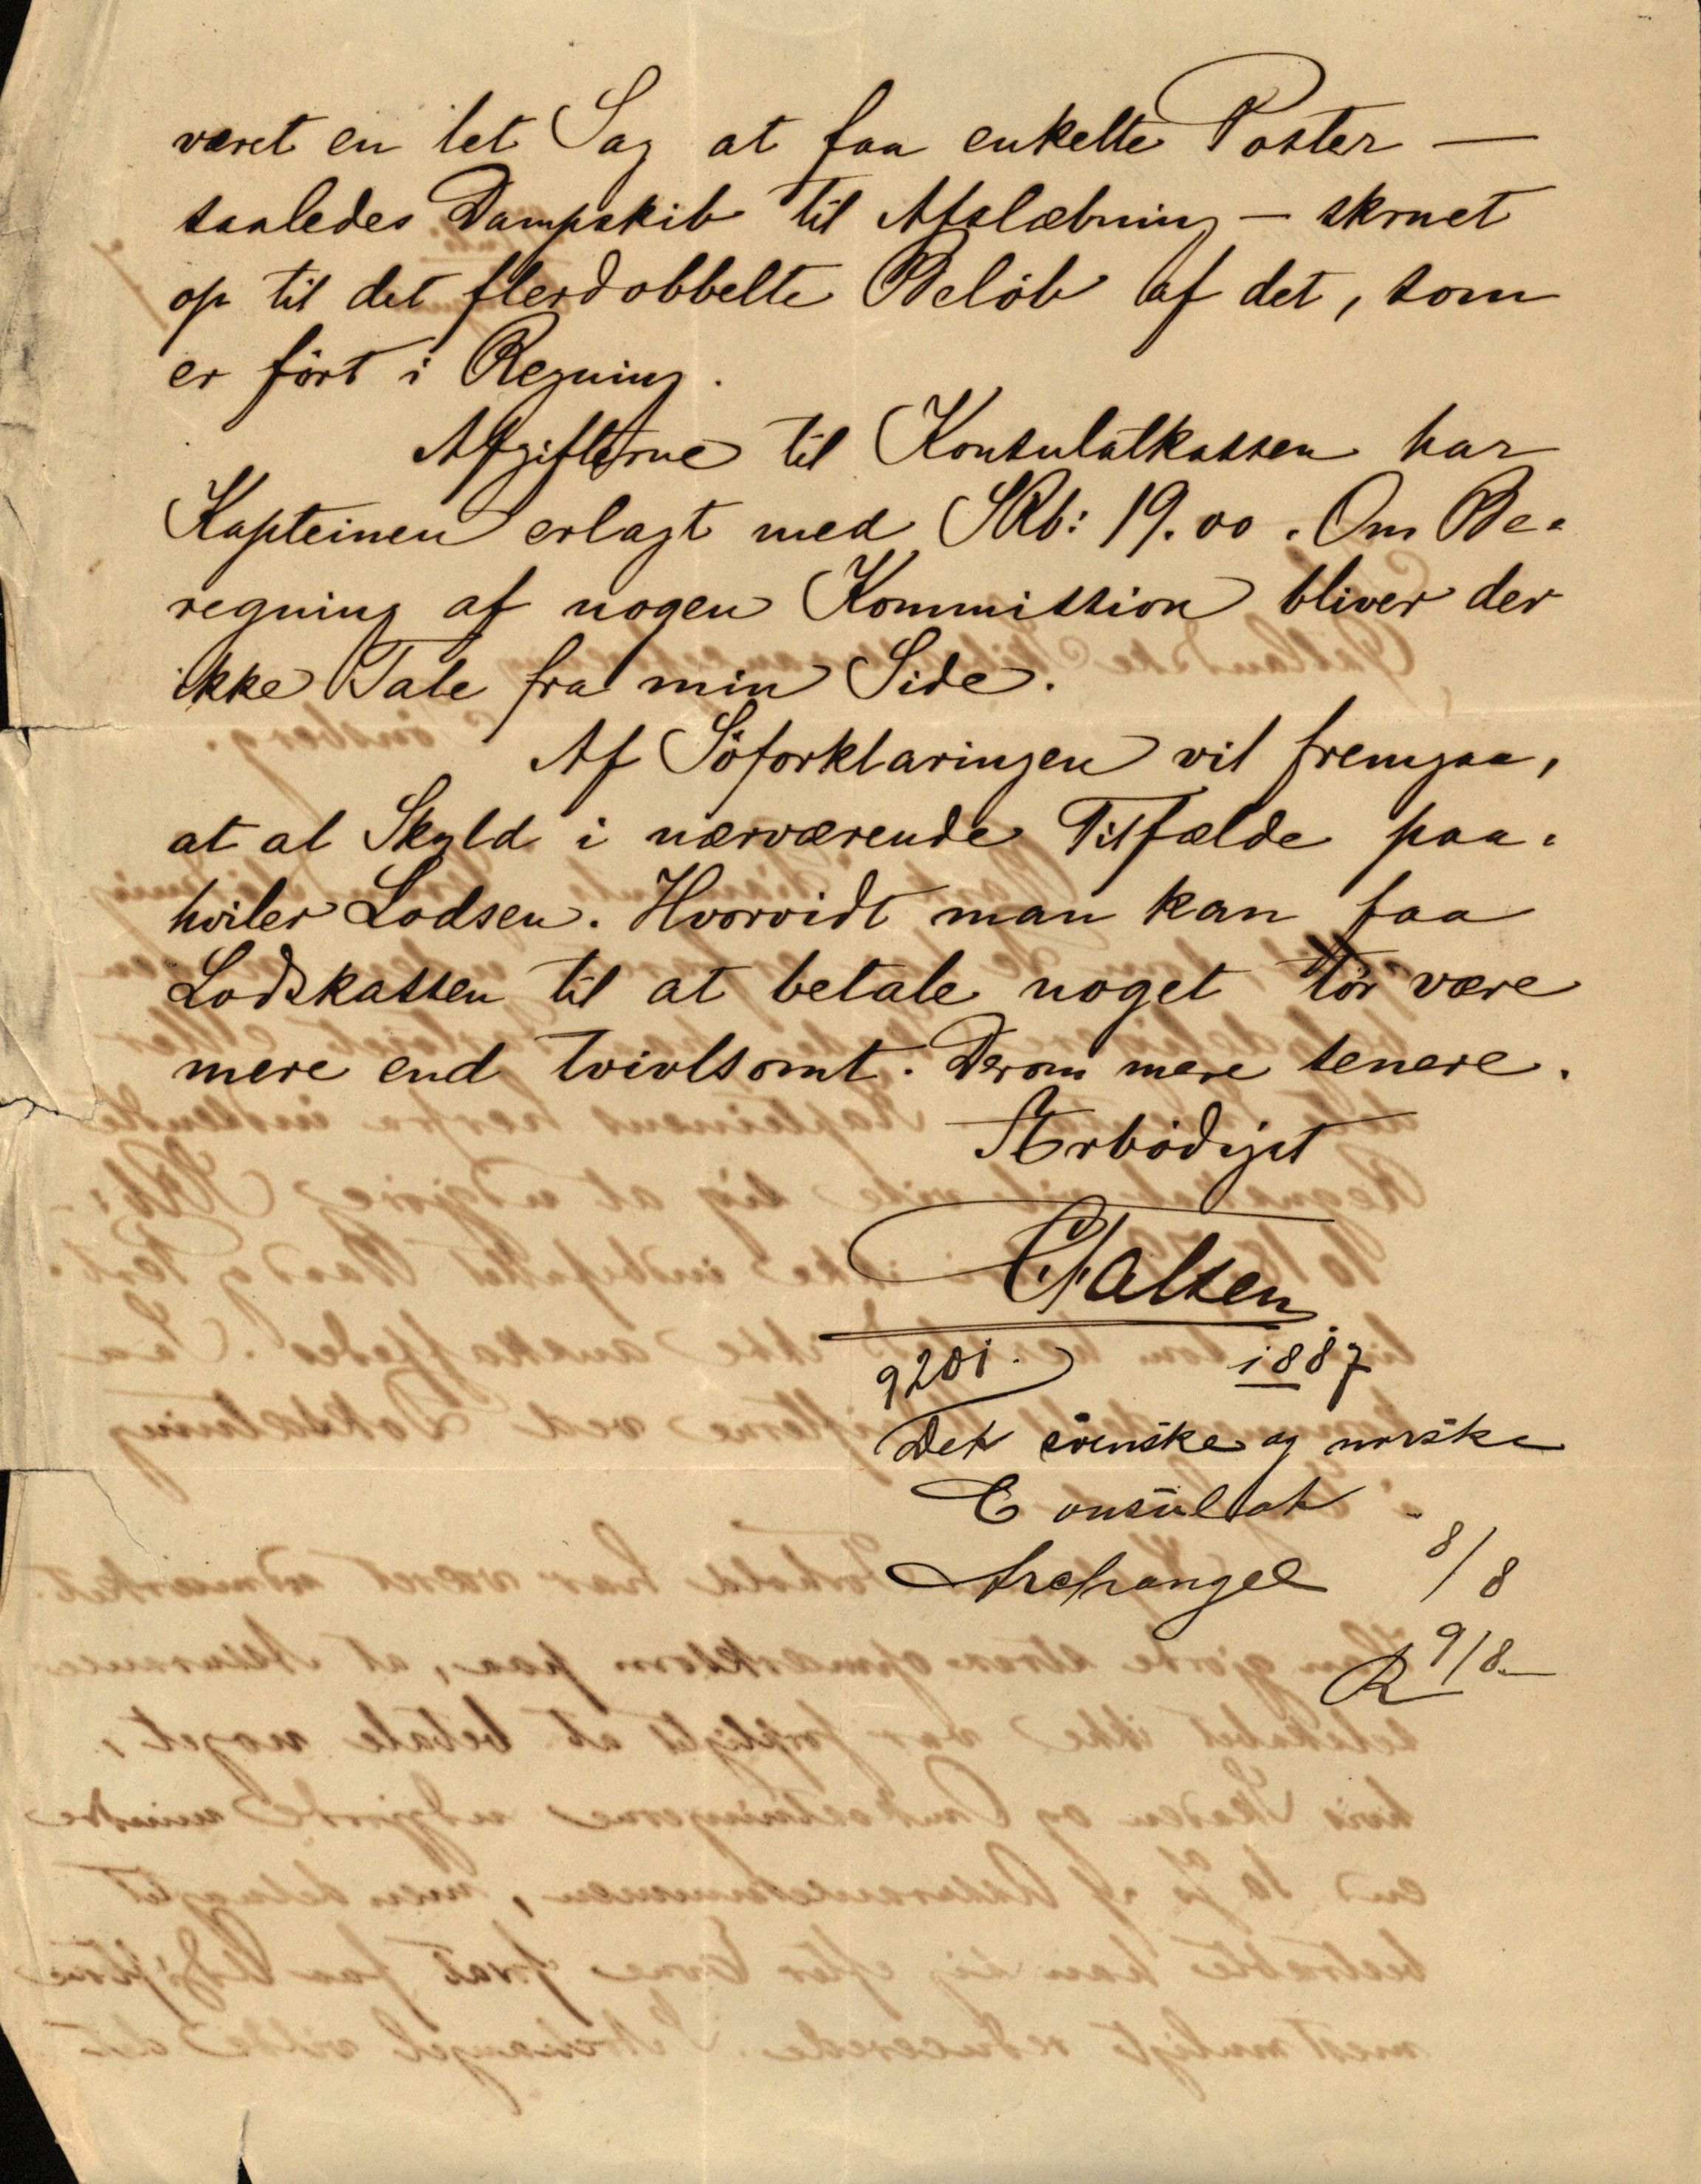 været en let Sag at faa enkelte Poster —
saaledes Dampskib til Afslæbning — skruet
op til det flerdobbelte Beløb af det, som
er ført i Regning.
Afgifterne til Konsulatkassen har
Kapteinen erlagt med SRb: 19.00. Om Be-
regning af nogen Kommission bliver der
ikke Tale fra min Side.
Af Söforklaringen vil fremgaa,
at al Skyld i nærværende Tilfælde paa-
hviler Lodsen. Hvorvidt man kan faa
Lodskassen til at betale noget tør være
mere end tvivlsomt. Derom mere senere.
Ærbödigst
CFalsen
9201. 1887
Det svenske og norske
Consulat
Archangel 8/8
R 9/8